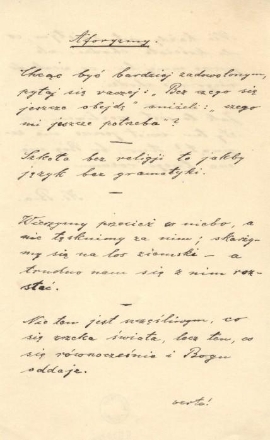 Aforyzmy.
Chcąc być bardziej zadowolonym,
pytaj się raczej: „Bez czego się
jeszcze obejdę" aniżeli: „czego
mi jeszcze potrzeba"?
Szkoła bez religji to jakby
język bez gramatyki.
Wierzymy przecież w niebo, a
nie tęsknimy za nim; skarży
my się na los ziemski – a
trudno nam się z nim roz-
stać.
Nie ten jest szczęśliwym, co
się zrzeka świata, lecz ten, co
się równocześnie i Bogu
oddaje.
verte!